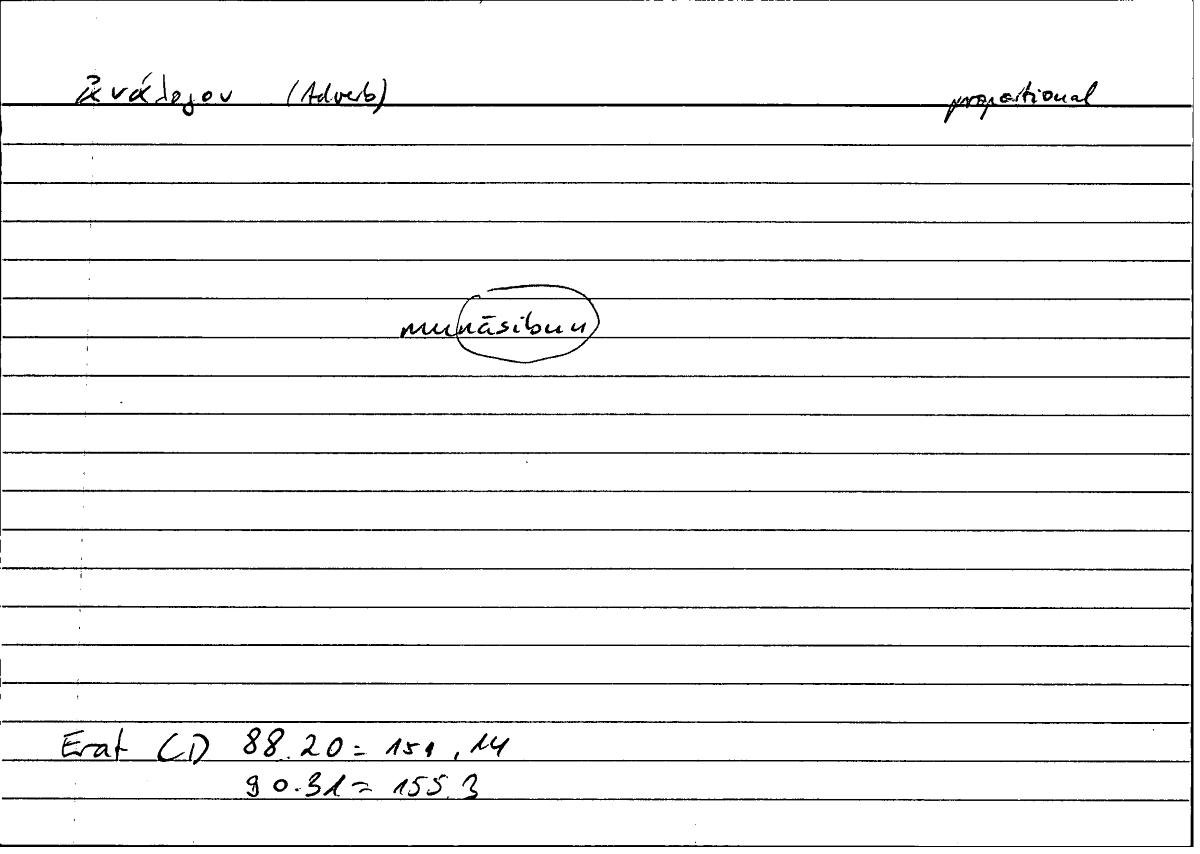 ἀνάλογον (Adverb) proportional
munāsibun
Erat (1) 88.20 = 151,14
90.31 = 155.3